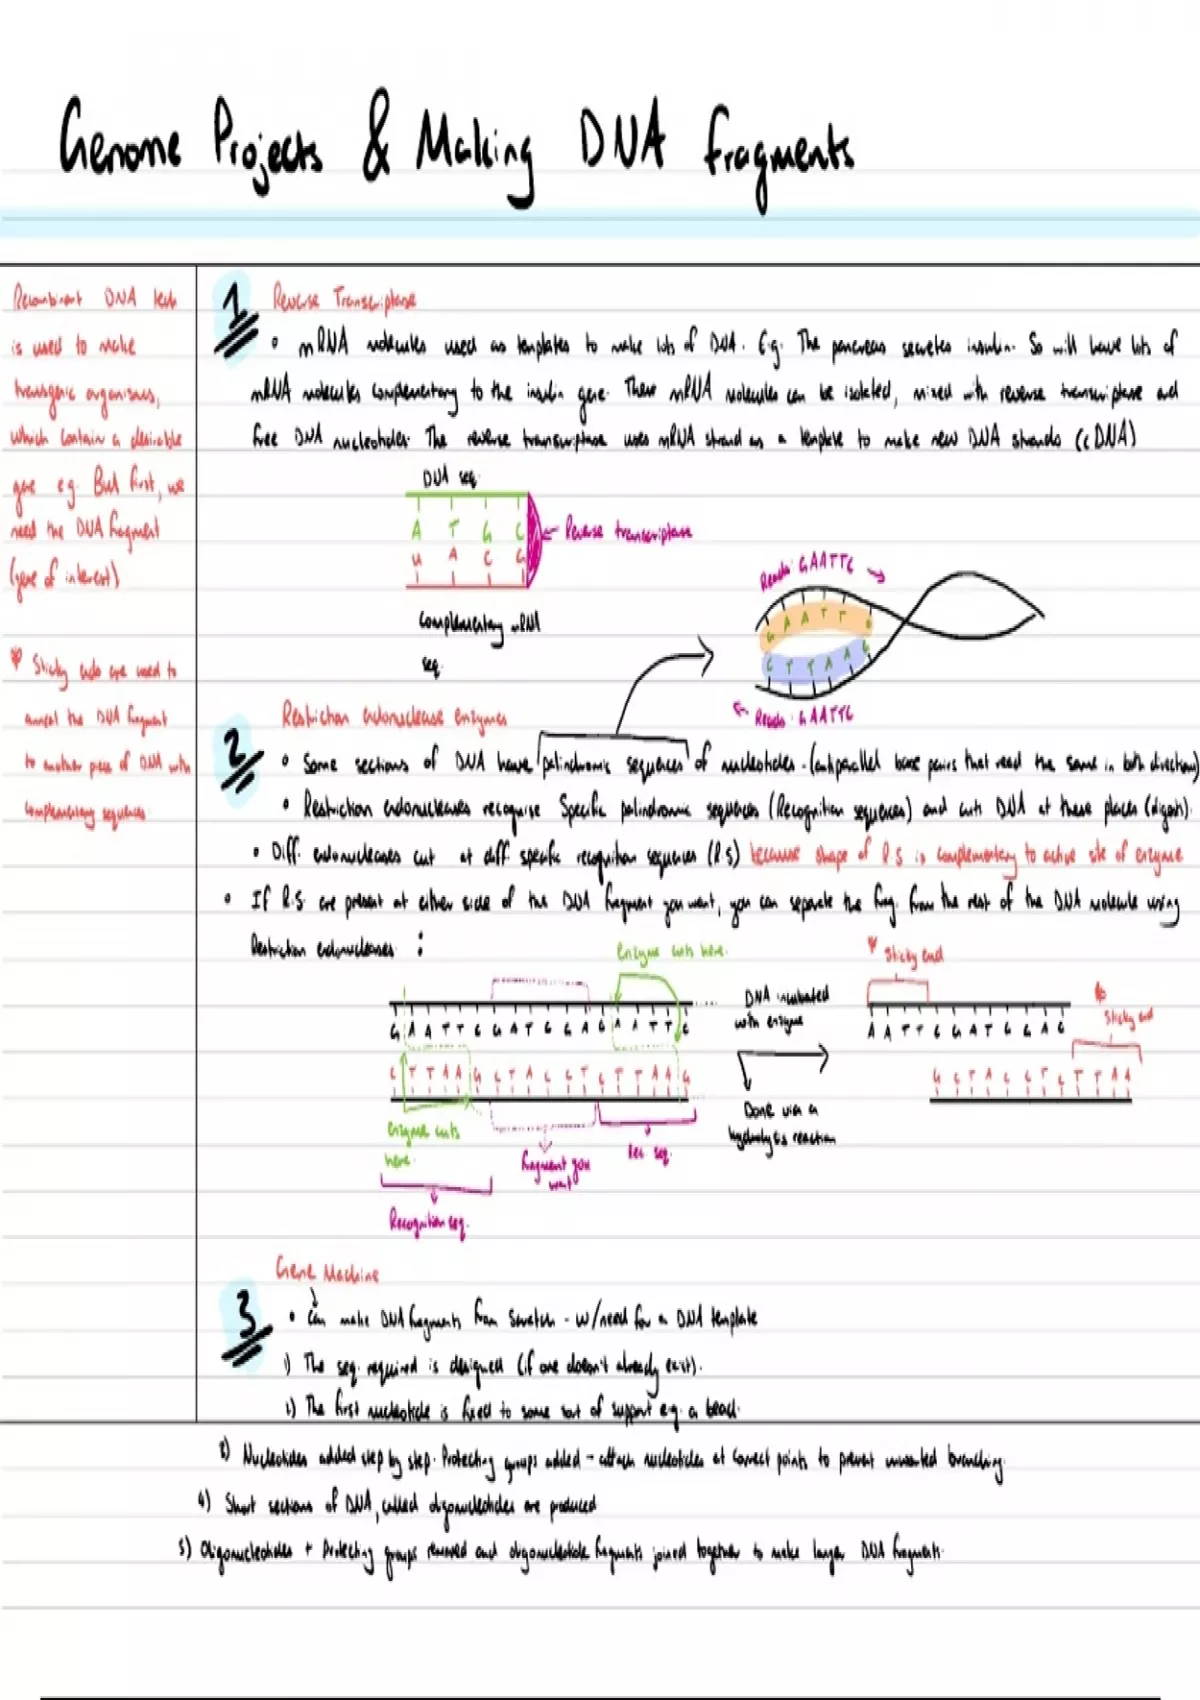 Genome Projects & Making DNA fragments
Recombinant DNA tech
is used to make
transgenic organisms,
which contain a desirable
gene e.g. But first, we
need the DNA fragment
(gene of interest)
* Sticky ends are used to
anneal the DNA fragment
to another piece of DNA with
complementary sequences
1 Reverse Transcriptase
• mRNA molecules used as templates to make lots of DNA. E.g. The pancreas secretes insulin. So will have lots of
mRNA molecules complementary to the insulin gene. These mRNA molecules can be isolated, mixed with reverse transcriptase and
free DNA nucleotides. The reverse transcriptase uses mRNA strand as a template to make new DNA strands (cDNA)
DNA seq.
A T G C
U A C G
← Reverse transcriptase
Complementary mRNA
seq.
Reads: GAATTC →
G A A T T C
C T T A A G
← Reads: GAATTC
2 Restriction endonuclease enzymes
• Some sections of DNA have palindromic sequences of nucleotides - (antiparallel base pairs that read the same in both directions)
• Restriction endonucleases recognise specific palindromic sequences (Recognition sequences) and cuts DNA at these places (digests).
• Diff. endonucleases cut at diff. specific recognition sequences (R.S) because shape of R.S is complementary to active site of enzyme
• If R.S are present at either side of the DNA fragment you want, you can separate the frag. from the rest of the DNA molecule using
Restriction endonucleases :
enzyme cuts here.
G A A T T C G A T G G A G A A T T C
C T T A A G C T A C C T C T T A A G
enzyme cuts
here.
Recognition seq.
fragment you
want
Rec. seq.
DNA incubated
with enzyme
Done via a
hydrolysis reaction
* Sticky end
A A T T C G A T G G A G
* Sticky end
G C T A C C T C T T A A
3 Gene Machine
• Can make DNA fragments from scratch - w/ need for a DNA template
1) The seq. required is designed (if one doesn't already exist).
2) The first nucleotide is fixed to some sort of support e.g. a bead.
3) Nucleotides added step by step. Protecting groups added - attach nucleotides at correct points to prevent unwanted branching.
4) Short sections of DNA, called oligonucleotides are produced
5) Oligonucleotides + Protecting groups removed and oligonucleotide fragments joined together to make larger DNA fragments.